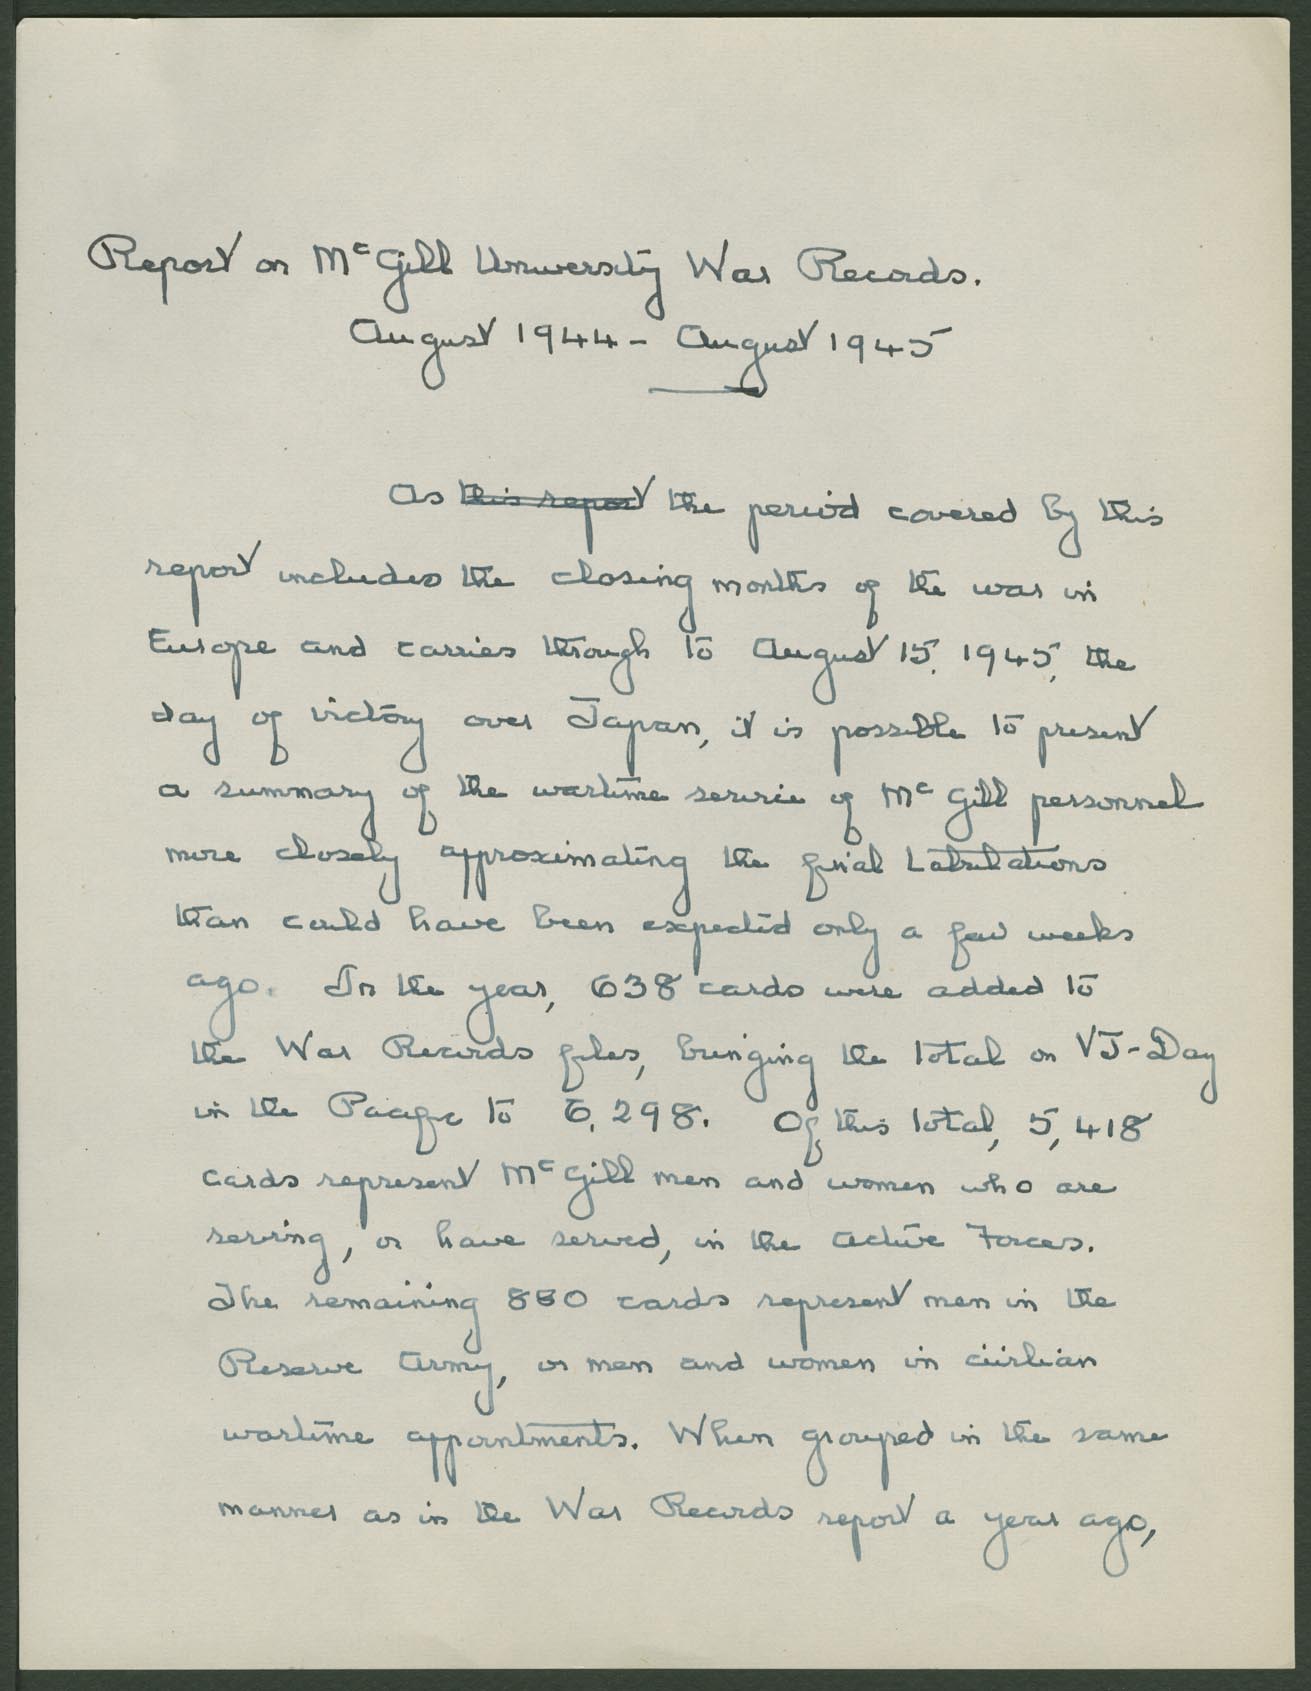 Report on McGill University War Records.
August 1944 - August 1945
As this report the period covered by this
report includes the closing months of the war in
Europe and carries through to August 15, 1945, the
day of victory over Japan, it is possible to present
a summary of the wartime service of McGill personnel
more closely approximating the final tabulations
than could have been expected only a few weeks
ago. In the year, 638 cards were added to
the War Records files, bringing the total on VJ-Day
in the Pacific to 6,298. Of this total, 5,418
cards represent McGill men and women who are
serving, or have served, in the Active Forces.
The remaining 880 cards represent men in the
Reserve Army, or men and women in civilian
wartime appointments. When grouped in the same
manner as in the War Records report a year ago,